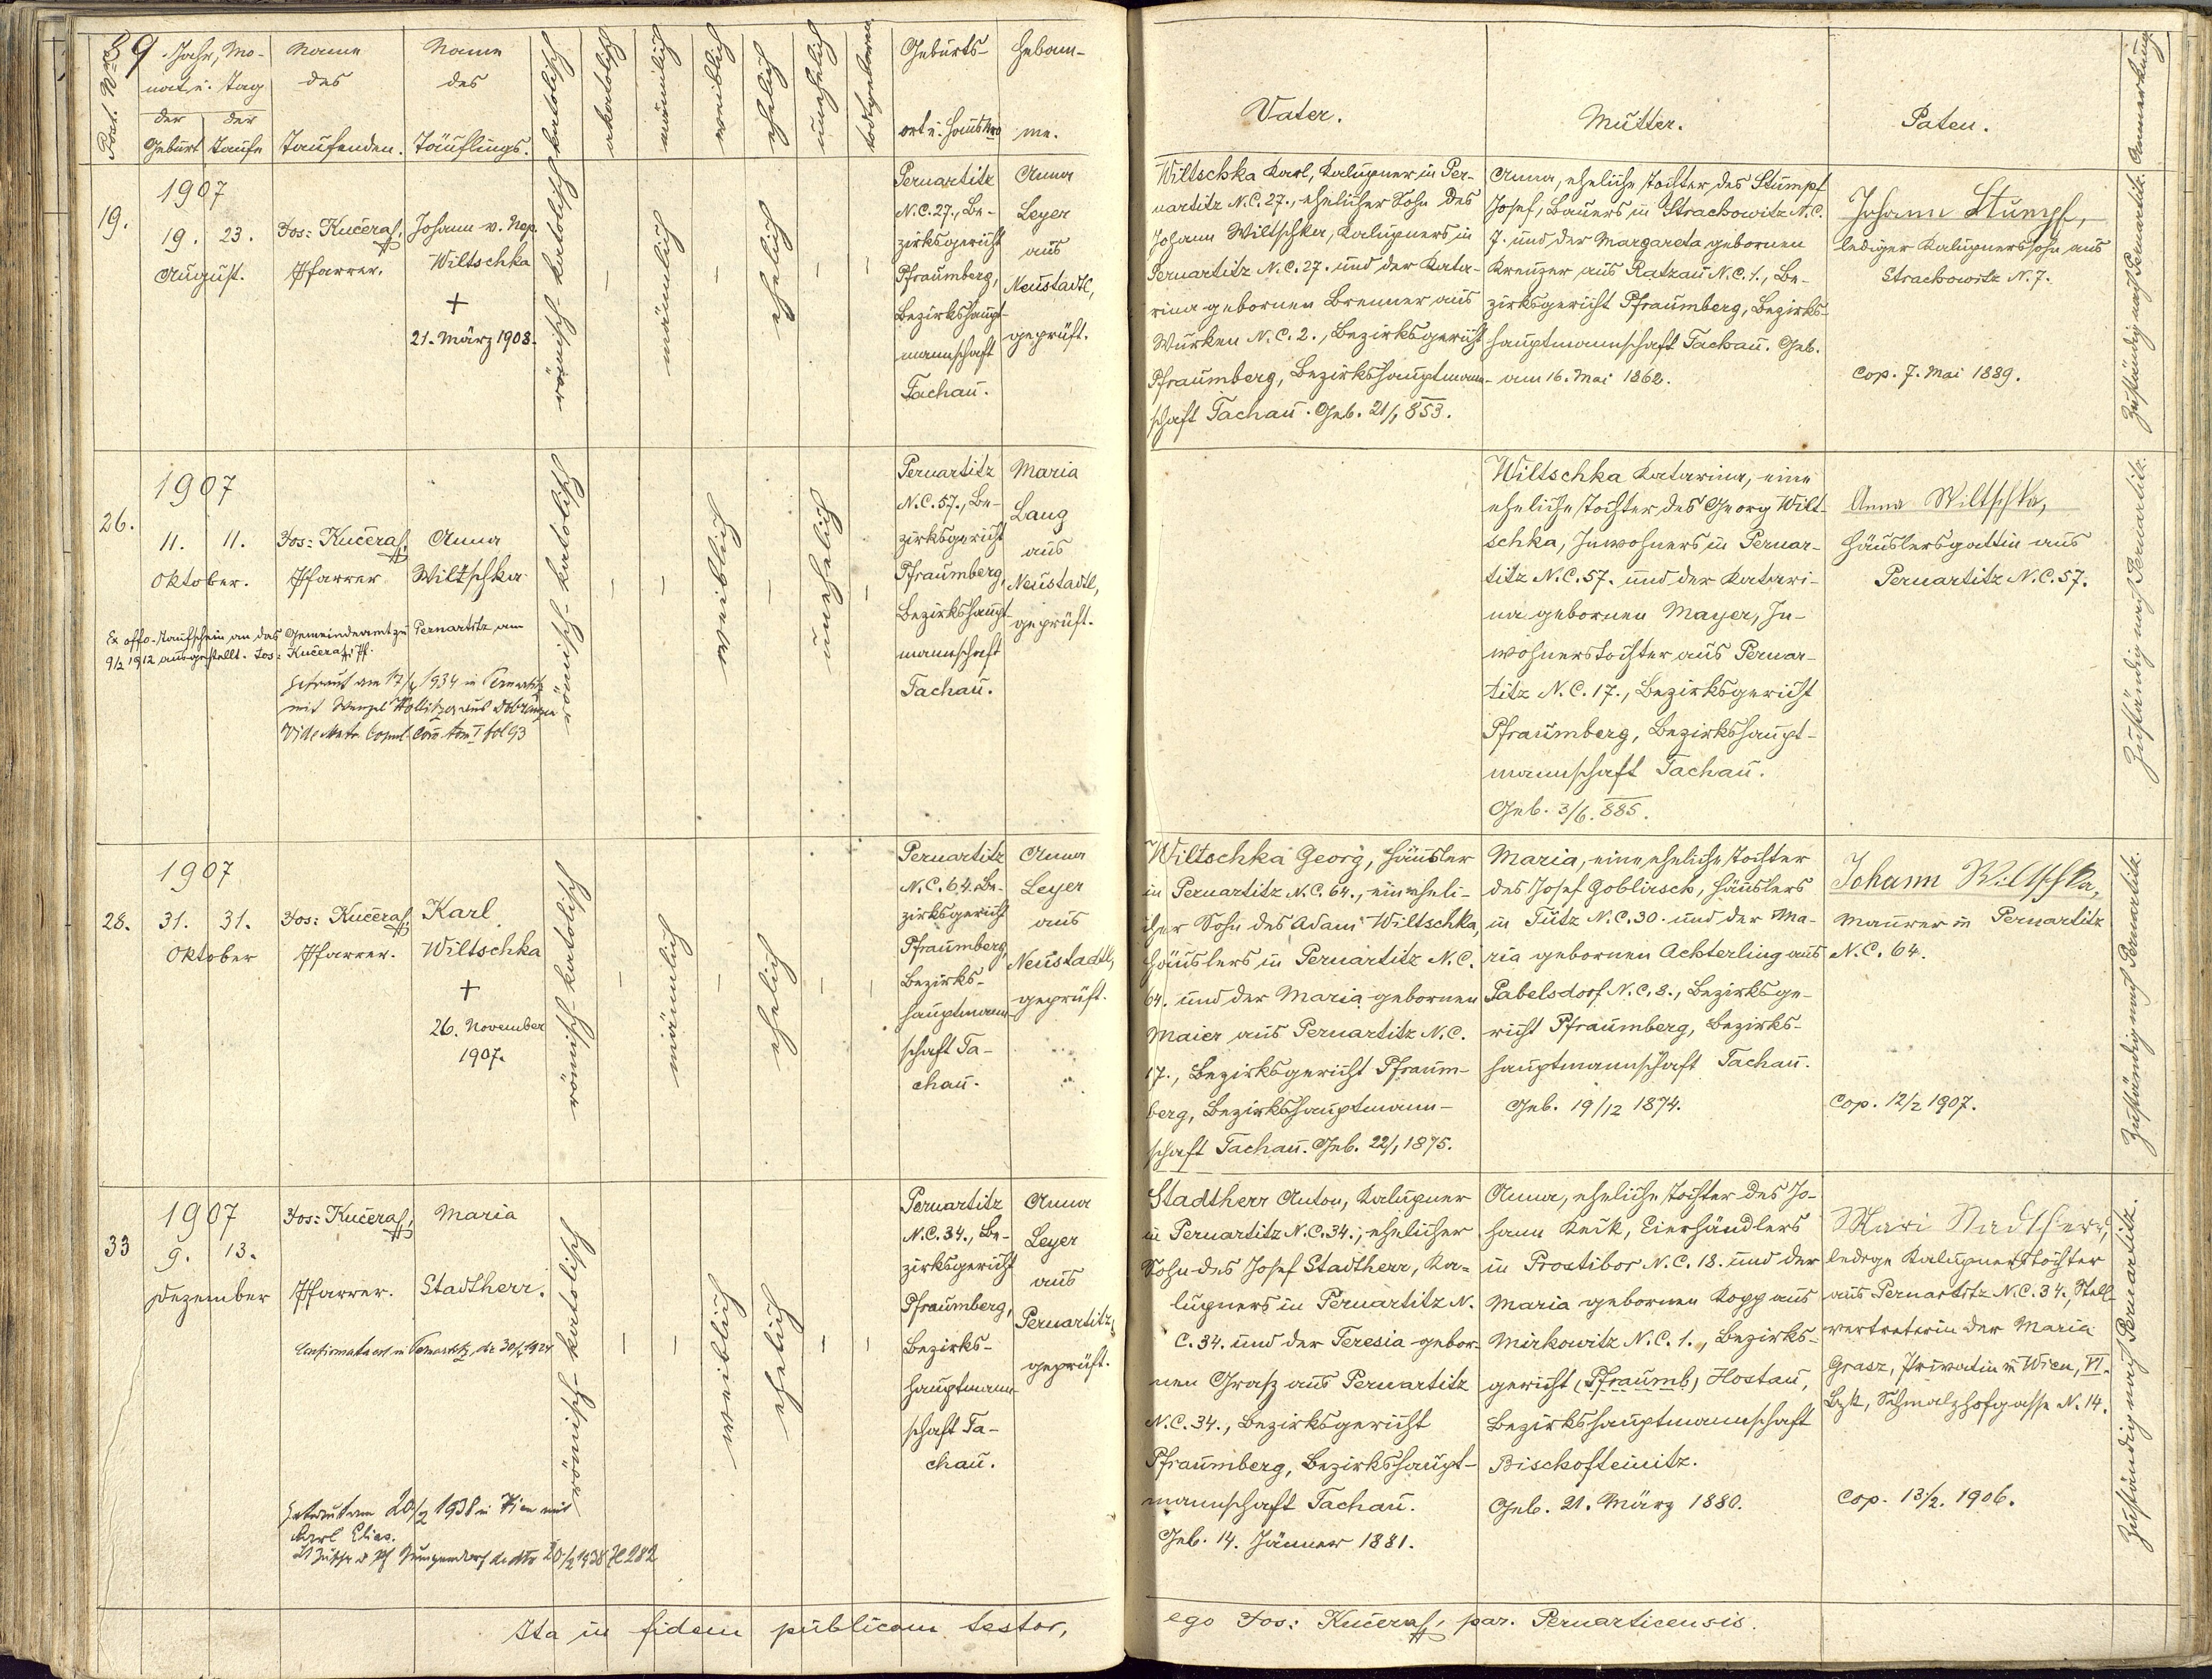 Post. Nro
89
Jahr, Mo-
nat u. Tag
der Geburt
der Taufe
Name
des
Taufenden.
Name
des
Täuflings.
katolisch
akatolisch
männlich
weiblich
ehelich
unehelich
todtgeboren
Geburts-
ort u. Haus Nro
Hebam-
me.
Vater.
Mutter.
Paten.
Anmerkung.
19.
1907
19. 23.
August.
Jos: Kučera,
Pfarrer.
Johann v. Nep.
Wiltschka
+
21. März 1908.
römisch-katolisch
–
männlich
–
ehelich
–
–
Pernartitz
N.C. 27., Be-
zirksgericht
Pfraumberg,
Bezirkshaupt-
mannschaft
Tachau.
Anna
Leyer
aus
Neustadtl,
geprüft.
Wiltschka Karl, Kalupner in Per-
nartitz N.C. 27., ehelicher Sohn des
Johann Wiltschka, Kalupners in
Pernartitz N.C. 27. und der Kata-
rina gebornen Brenner aus
Wurken N.C. 2., Bezirksgericht
Pfraumberg, Bezirkshauptmann-
schaft Tachau. Geb. 21/1 853.
Anna, eheliche Tochter des Stumpf
Josef, Bauers in Strachowitz N.C.
7. und der Margareta gebornen
Kreuzer aus Ratzau N.C. 1., Be-
zirksgericht Pfraumberg, Bezirks-
hauptmannschaft Tachau. Geb.
am 16. Mai 1862.
Johann Stumpf,
lediger Kalupnerssohn aus
Strachowitz N. 7.
Cop. 7. Mai 1889.
Zuständig nach Pernartitz.
26.
1907
11. 11.
Oktober.
Jos: Kučera,
Pfarrer
Anna
Wiltschka
Ex offo. Taufschein an das Gemeindeamt zu Pernartitz am
9/2 1912 ausgestellt. Jos: Kučera, Pf.
Getraut am 17/4 1934 in Pernartitz
mit Wenzel aus
Vide Matr. Copul. Tom I fol 93
römisch-katolisch
–
–
weiblich
–
unehelich
–
Pernartitz
N.C. 57., Be-
zirksgericht
Pfraumberg,
Bezirkshaupt-
mannschaft
Tachau.
Maria
Lang
aus
Neustadtl,
geprüft.
Wiltschka Katarina, eine
eheliche Tochter des Georg Wilt-
schka, Inwohners in Pernar-
titz N.C. 57. und der Katari-
na gebornen Mayer, In-
wohnerstochter aus Pernar-
titz N.C. 17., Bezirksgericht
Pfraumberg, Bezirkshaupt-
mannschaft Tachau.
Geb. 3/6. 885.
Anna Wiltschka,
Häuslersgattin aus
Pernartitz N.C. 57.
Zuständig nach Pernartitz.
28.
1907
31. 31.
Oktober
Jos: Kučera,
Pfarrer.
Karl
Wiltschka
+
26. November
1907.
römisch-katolisch
–
männlich
–
ehelich
–
–
Pernartitz
N.C. 64. Be-
zirksgericht
Pfraumberg,
Bezirks-
hauptmann-
schaft Ta-
chau.
Anna
Leyer
aus
Neustadtl,
geprüft.
Wiltschka Georg, Häusler
in Pernartitz N.C. 64., ein eheli-
cher Sohn des Adam Wiltschka,
Häuslers in Pernartitz N.C.
64. und der Maria gebornen
Maier aus Pernartitz N.C.
17., Bezirksgericht Pfraum-
berg, Bezirkshauptmann-
schaft Tachau. Geb. 22/1 1875.
Maria, eine eheliche Tochter
des Josef Goblirsch, Häuslers
in Tutz N.C. 30. und der Ma-
ria gebornen Achterling aus
Pabelsdorf N.C. 8., Bezirksge-
richt Pfraumberg, Bezirks-
hauptmannschaft Tachau.
Geb. 19/12 1874.
Johann Wiltschka,
Maurer in Pernartitz
N.C. 64.
Cop. 12/2 1907.
Zuständig nach Pernartitz.
33
1907
9. 13.
Dezember
Jos: Kučera,
Pfarrer.
Maria
Stadtherr.
Confirmata est in Pernartitz, die 30/4 1924
Getraut am 20/2 1938 in Wien mit
Karl Elias.
Lt Zuschr. d. Pf Gumpendorf de dto 20/2 1938 Zl 282
römisch-katolisch
–
–
weiblich
ehelich
–
–
Pernartitz
N.C. 34., Be-
zirksgericht
Pfraumberg,
Bezirks-
hauptmann-
schaft Ta-
chau.
Anna
Leyer
aus
Pernartitz,
geprüft.
Stadtherr Anton, Kalupner
in Pernartitz N.C. 34., ehelicher
Sohn des Josef Stadtherr, Ka-
lupners in Pernartitz N.
C. 34. und der Teresia gebor-
nen Grasz aus Pernartitz
N.C. 34., Bezirksgericht
Pfraumberg, Bezirkshaupt-
mannschaft Tachau.
Geb. 14. Jänner 1881.
Anna, eheliche Tochter des Jo-
hann Keck, Eierhändlers
in Prostibor N.C. 18. und der
Maria gebornen Kopp aus
Mirkowitz N.C. 1., Bezirks-
gericht (Pfraumb) Hostau,
Bezirkshauptmannschaft
Bischofteinitz.
Geb. 21. März 1880.
Mari Stadtherr,
ledige Kalupnerstochter
aus Pernartitz N.C. 34., Stell-
vertreterin der Maria
Grasz, Privatin in Wien, VI.
Bzk, Schmalzhofgasse N. 14.
Cop. 13/2. 1906.
Zuständig nach Pernartitz.
Ita in fidem publicam testor,
ego Jos: Kučera, par. Pernarticensis.